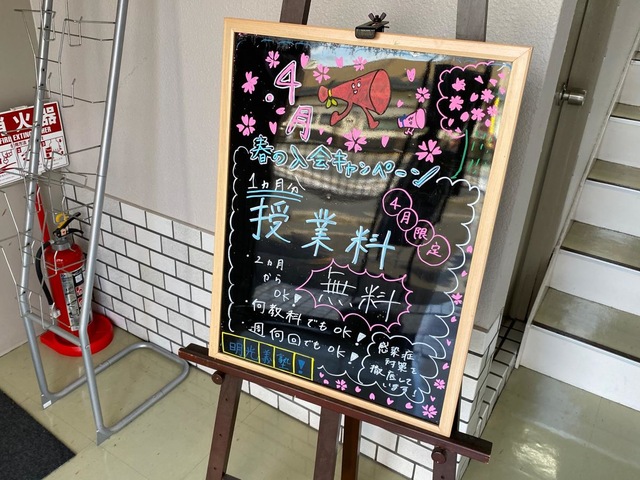 4月
春の入会キャンペーン
1ヵ月分
授業料
4月限定
無料
・2ヵ月
から
OK!
・何教科でもOK!
・週何回でもOK!
明光義塾!
感染症
対策を
徹底して
います!
消火器
FIRE EXTINGUISHER